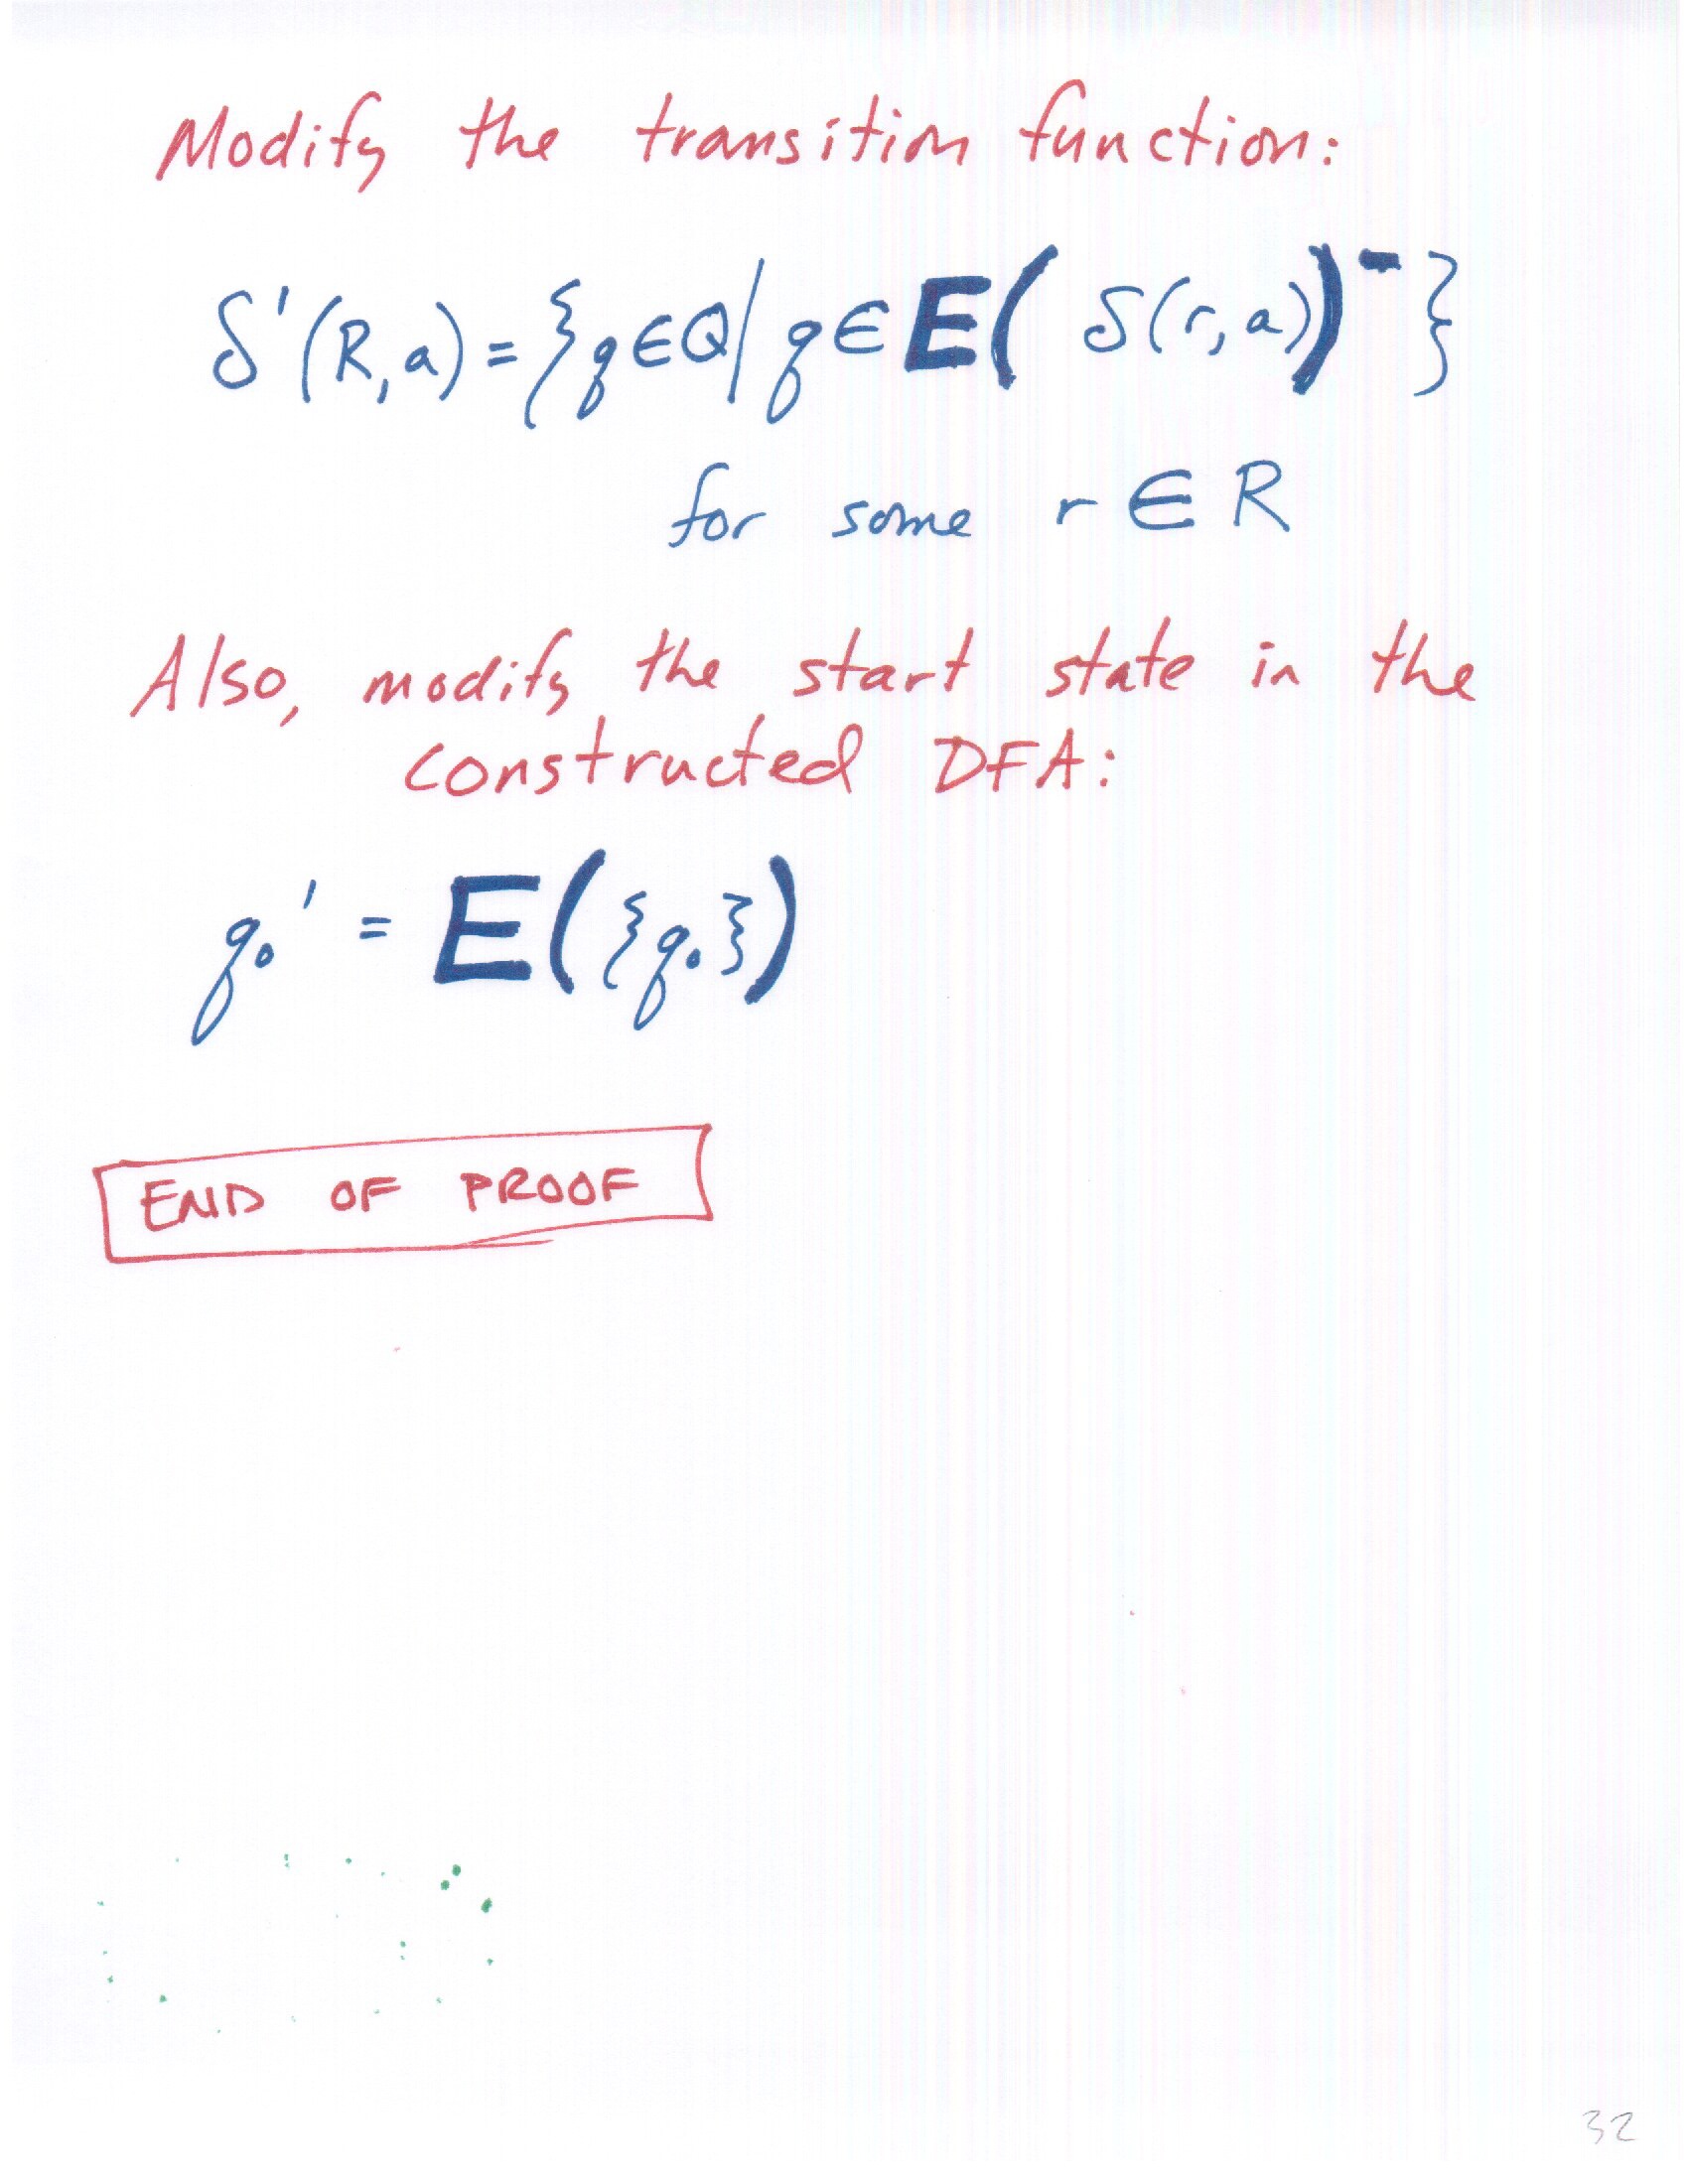 Modify the transition function:
δ'(R,a)={q∈Q|q∈E(δ(r,a))⁻}
for some r∈R
Also, modify the start state in the
constructed DFA:
q₀' = E({q₀})
END OF PROOF
32